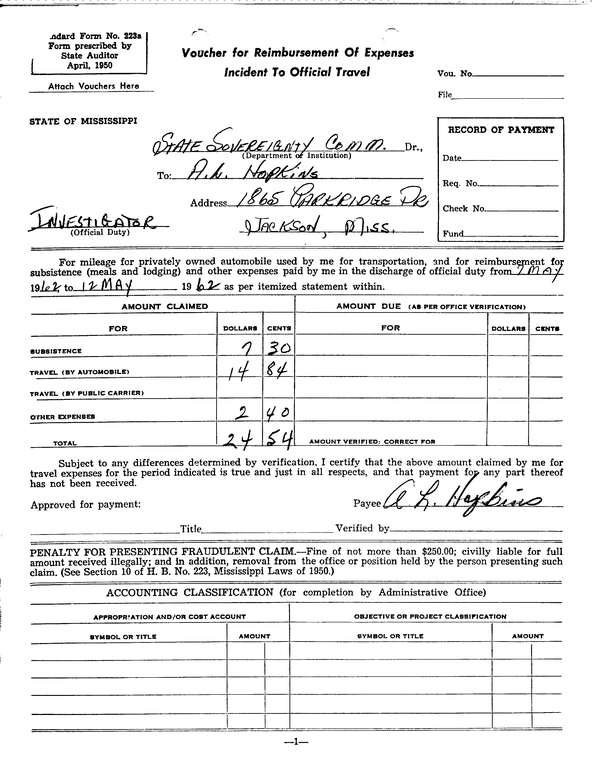 ndard Form No. 223a
Form prescribed by
State Auditor
April, 1950
Attach Vouchers Here
Voucher for Reimbursement Of Expenses
Incident To Official Travel
Vou. No.
File
STATE OF MISSISSIPPI
RECORD OF PAYMENT
Date
Req. No.
Check No.
Fund
STATE SOVEREIGNTY COMM. Dr.,
(Department of Institution)
To: A.L. HOPKINS
Address 1865 PARKRIDGE DR
INVESTIGATOR JACKSON, MISS.
(Official Duty)
For mileage for privately owned automobile used by me for transportation, and for reimbursement for
subsistence (meals and lodging) and other expenses paid by me in the discharge of official duty from 7 MAY
1962 to 12 MAY 1962 as per itemized statement within.
AMOUNT CLAIMED AMOUNT DUE (AS PER OFFICE VERIFICATION)
FOR DOLLARS CENTS FOR DOLLARS CENTS
SUBSISTENCE 7 30
TRAVEL (BY AUTOMOBILE) 14 84
TRAVEL (BY PUBLIC CARRIER)
OTHER EXPENSES 2 40
TOTAL 24 54 AMOUNT VERIFIED: CORRECT FOR
Subject to any differences determined by verification, I certify that the above amount claimed by me for
travel expenses for the period indicated is true and just in all respects, and that payment for any part thereof
has not been received.
Approved for payment: Payee A L. Hopkins
Title Verified by
PENALTY FOR PRESENTING FRAUDULENT CLAIM.—Fine of not more than $250.00; civilly liable for full
amount received illegally; and in addition, removal from the office or position held by the person presenting such
claim. (See Section 10 of H. B. No. 223, Mississippi Laws of 1950.)
ACCOUNTING CLASSIFICATION (for completion by Administrative Office)
APPROPRIATION AND/OR COST ACCOUNT OBJECTIVE OR PROJECT CLASSIFICATION
SYMBOL OR TITLE AMOUNT SYMBOL OR TITLE AMOUNT
—1—